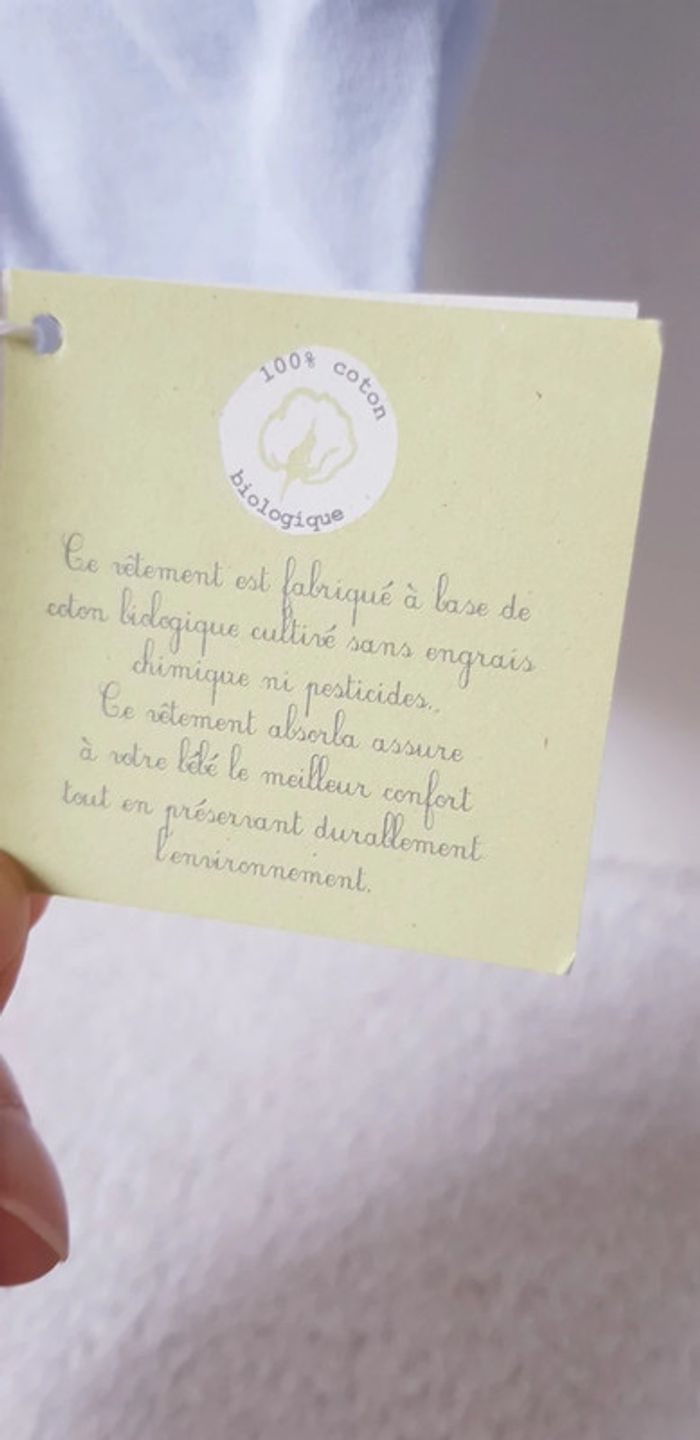 100% coton
biologique
Ce vêtement est fabriqué à base de
coton biologique cultivé sans engrais
chimique ni pesticides..
Ce vêtement absorba assure
à votre bébé le meilleur confort
tout en préservant durablement
l'environnement.